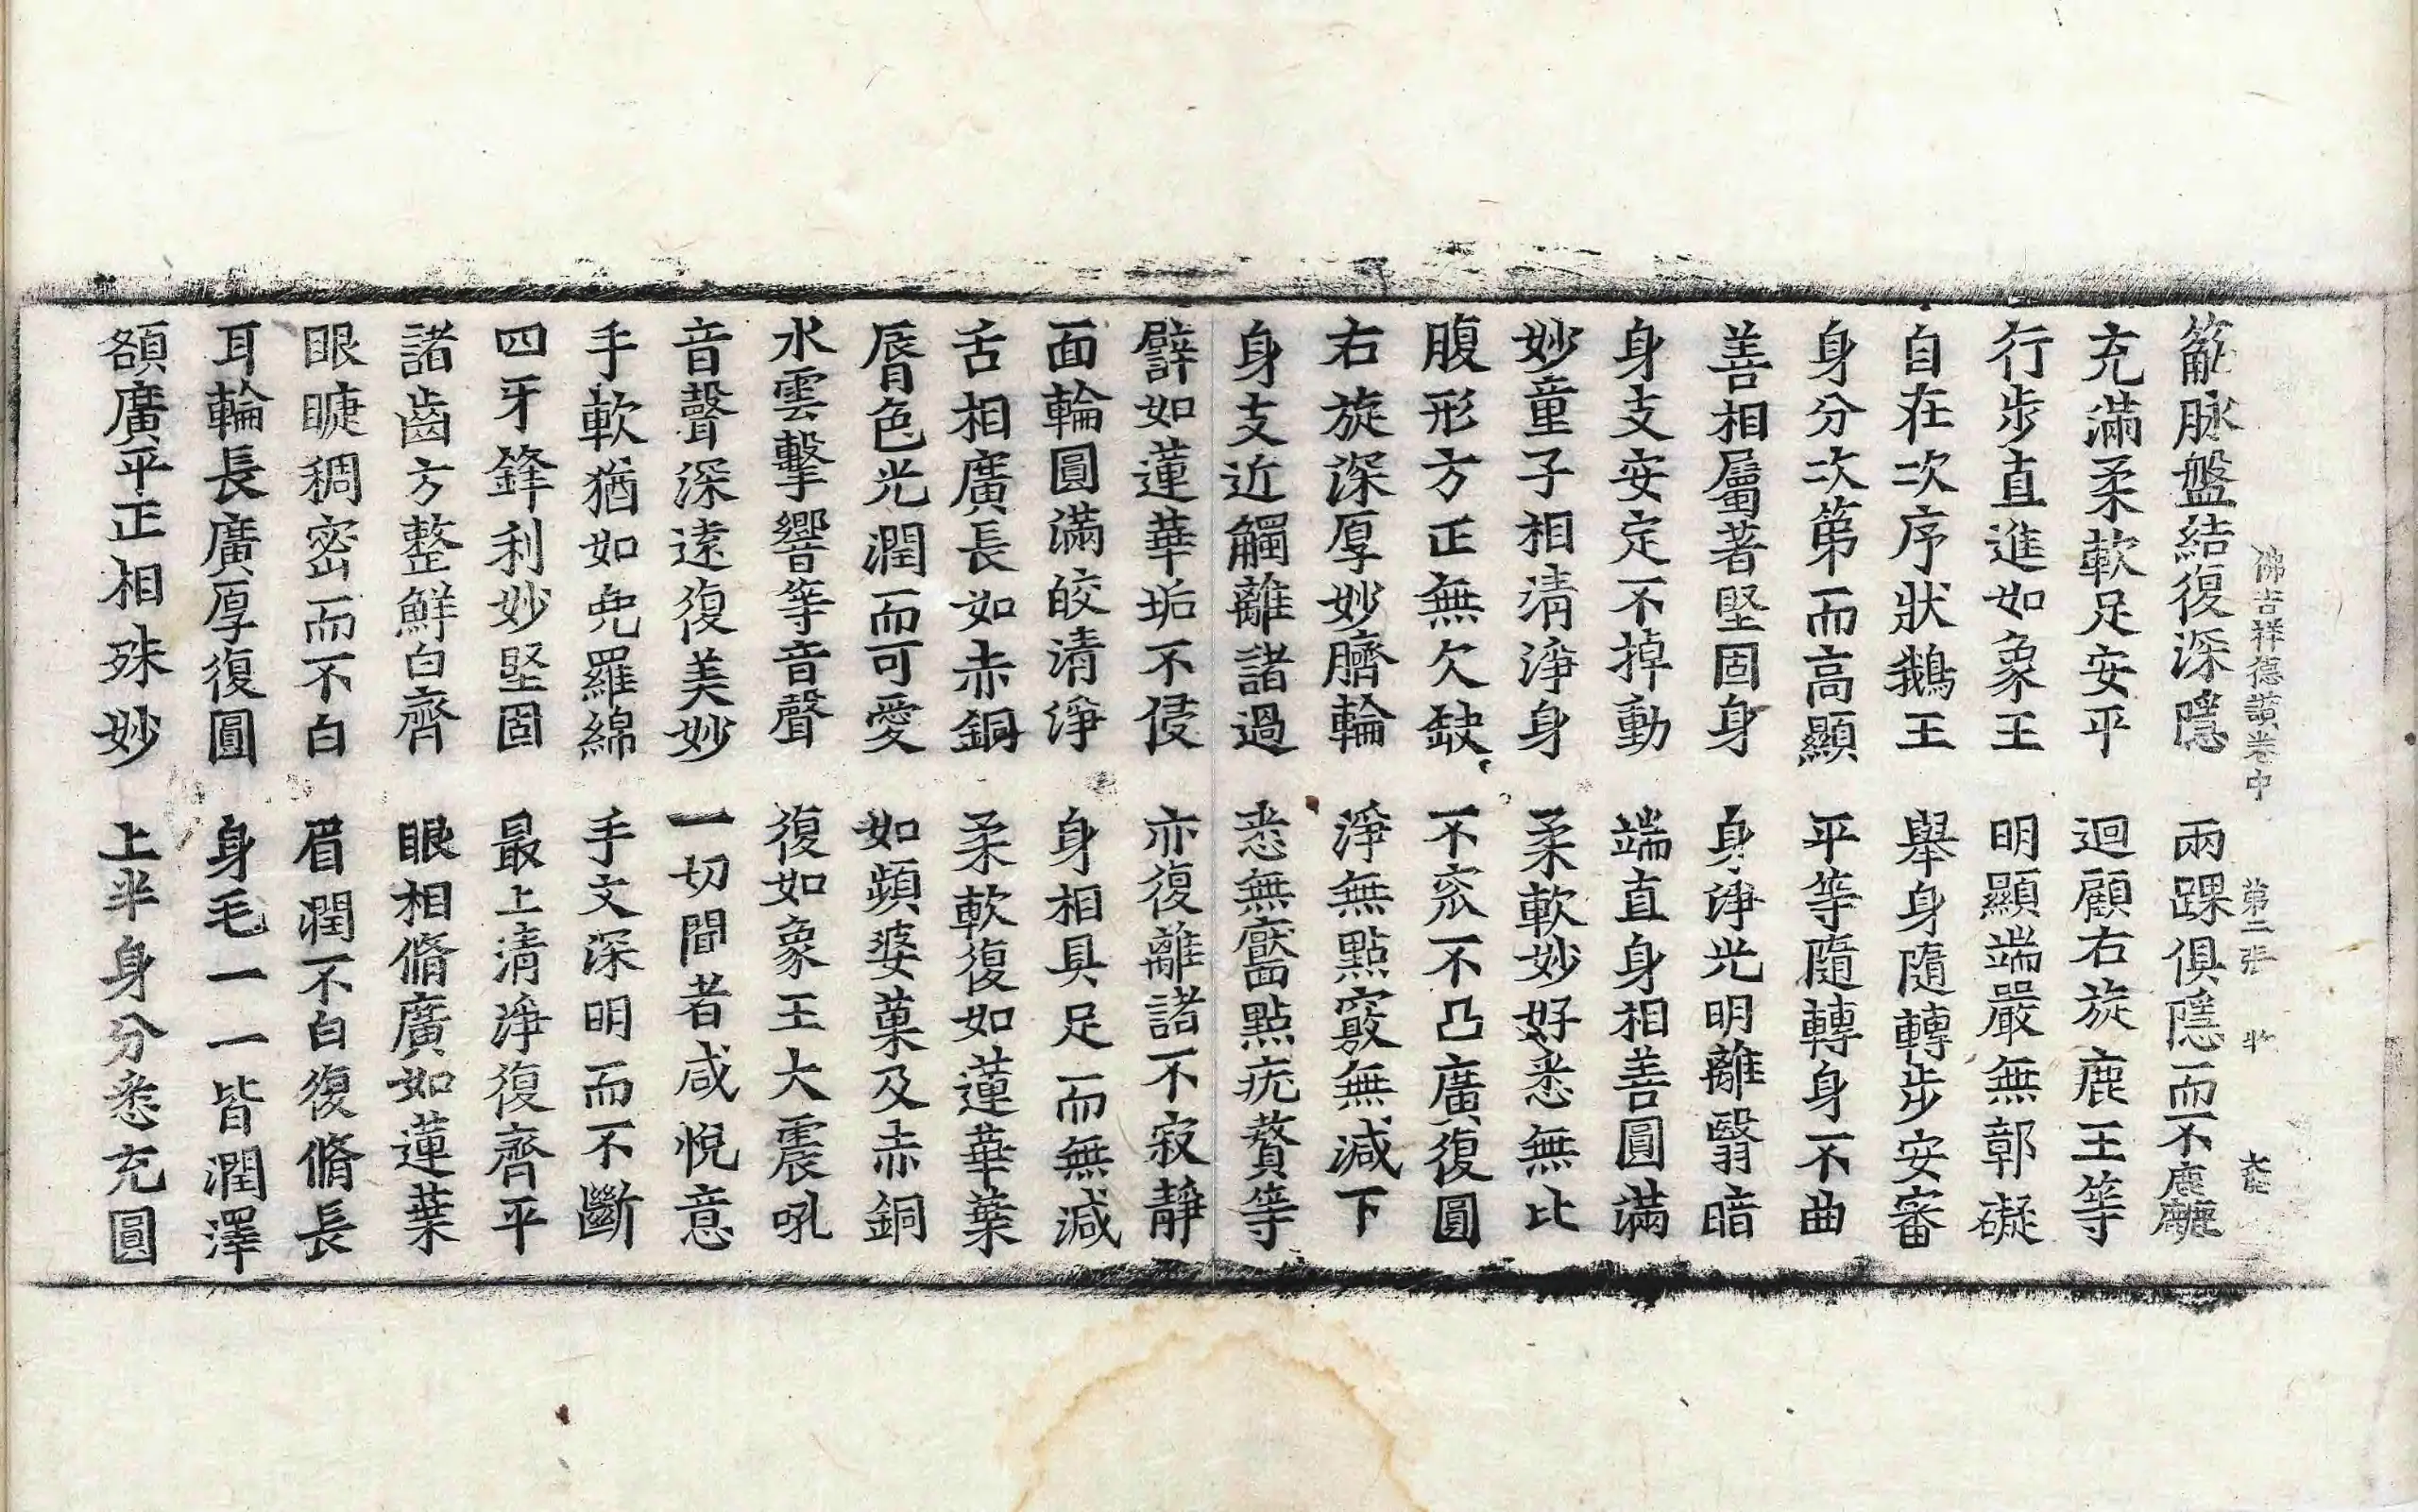 佛吉祥德讚卷中　第二張　牛
筋脉盤結復深隱　兩踝俱隱而不麁𪋻
充滿柔軟足安平　迴顧右旋鹿王等
行步直進如象王　明顯端嚴無郭礙
自在次序狀鵝王　舉身隨轉步安審
身分次第而高顯　平等隨轉身不曲
善相屬著堅固身　身淨光明離翳暗
身支安定不掉動　端直身相善圓滿
妙童子相清淨身　柔軟妙好悉無比
腹形方正無欠缺　不窊不凸廣復圓
右旋深厚妙臍輪　淨無點竅無減下
身支近觸離諸過　悉無黶點疣贅等
譬如蓮華垢不侵　亦復離諸不寂靜
面輪圓滿皎清淨　身相具足而無減
舌相廣長如赤銅　柔軟復如蓮華葉
脣色光潤而可愛　如蘋婆菓及赤銅
水雲擊響等音聲　復如象王大震吼
音聲深遠復美妙　一切聞者咸悅意
手軟猶如兠羅綿　手文深明而不斷
四牙鋒利妙堅固　最上清淨復齊平
諸齒方整鮮白齊　眼相脩廣如蓮葉
眼睫稠密而不白　眉潤不白復脩長
耳輪長廣厚復圓　身毛一一皆潤澤
額廣平正相殊妙　上半身分悉充圓